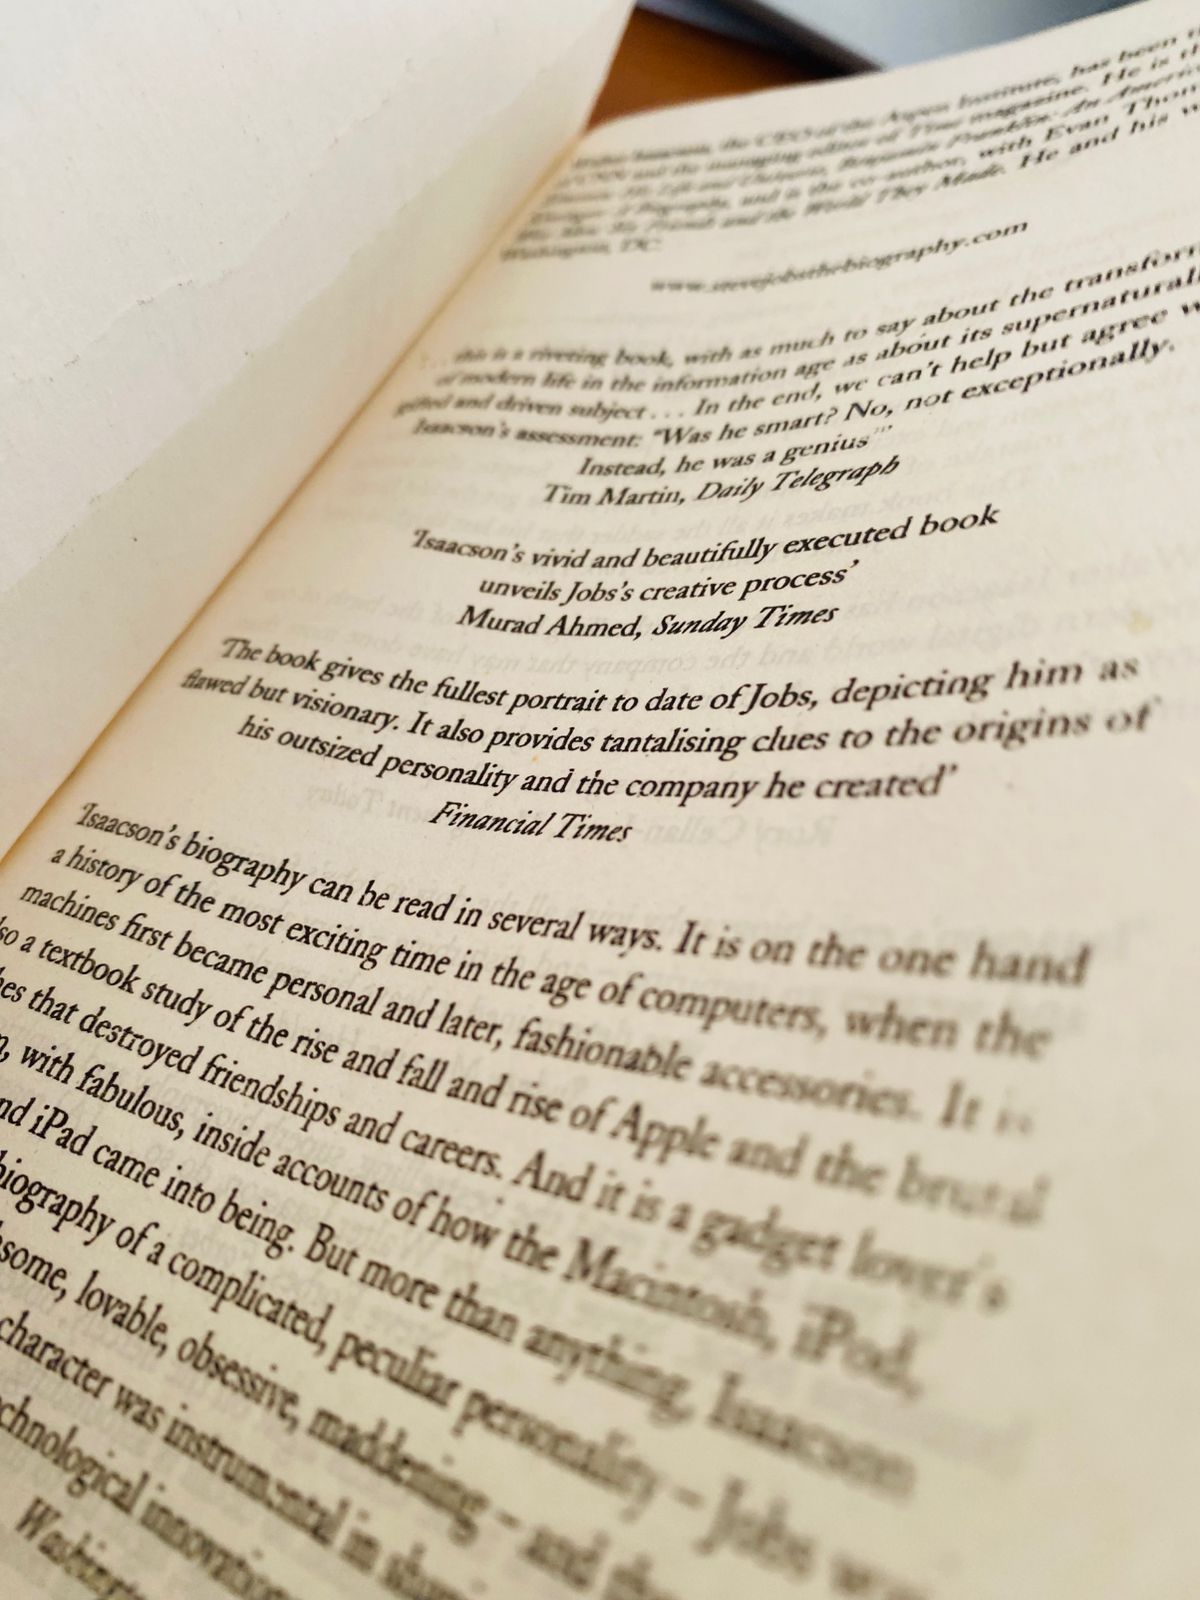 Isaacson, the CEO of the Aspen Institute, has been
CNN and the managing editor of Time magazine. He is
His Life and Universe, Benjamin Franklin: An America
A Biography, and is the co-author, with Evan Thom
Friends and the World They Made. He and his
Washington, DC.
www.stevejobsthebiography.com
this is a riveting book, with as much to say about the transform
of modern life in the information age as about its supernaturall
gifted and driven subject . . . In the end, we can't help but agree w
Isaacson's assessment: "Was he smart? No, not exceptionally.
Instead, he was a genius"'
Tim Martin, Daily Telegraph
'Isaacson's vivid and beautifully executed book
unveils Jobs's creative process'
Murad Ahmed, Sunday Times
'The book gives the fullest portrait to date of Jobs, depicting him as
flawed but visionary. It also provides tantalising clues to the origins of
his outsized personality and the company he created'
Financial Times
'Isaacson's biography can be read in several ways. It is on the one hand
a history of the most exciting time in the age of computers, when the
machines first became personal and later, fashionable accessories. It is
so a textbook study of the rise and fall and rise of Apple and the brutal
hes that destroyed friendships and careers. And it is a gadget lover's
n, with fabulous, inside accounts of how the Macintosh, iPod,
nd iPad came into being. But more than anything, Isaacson
biography of a complicated, peculiar personality – Jobs
some, lovable, obsessive, maddening – and
character was instrumental in
chnological innovation